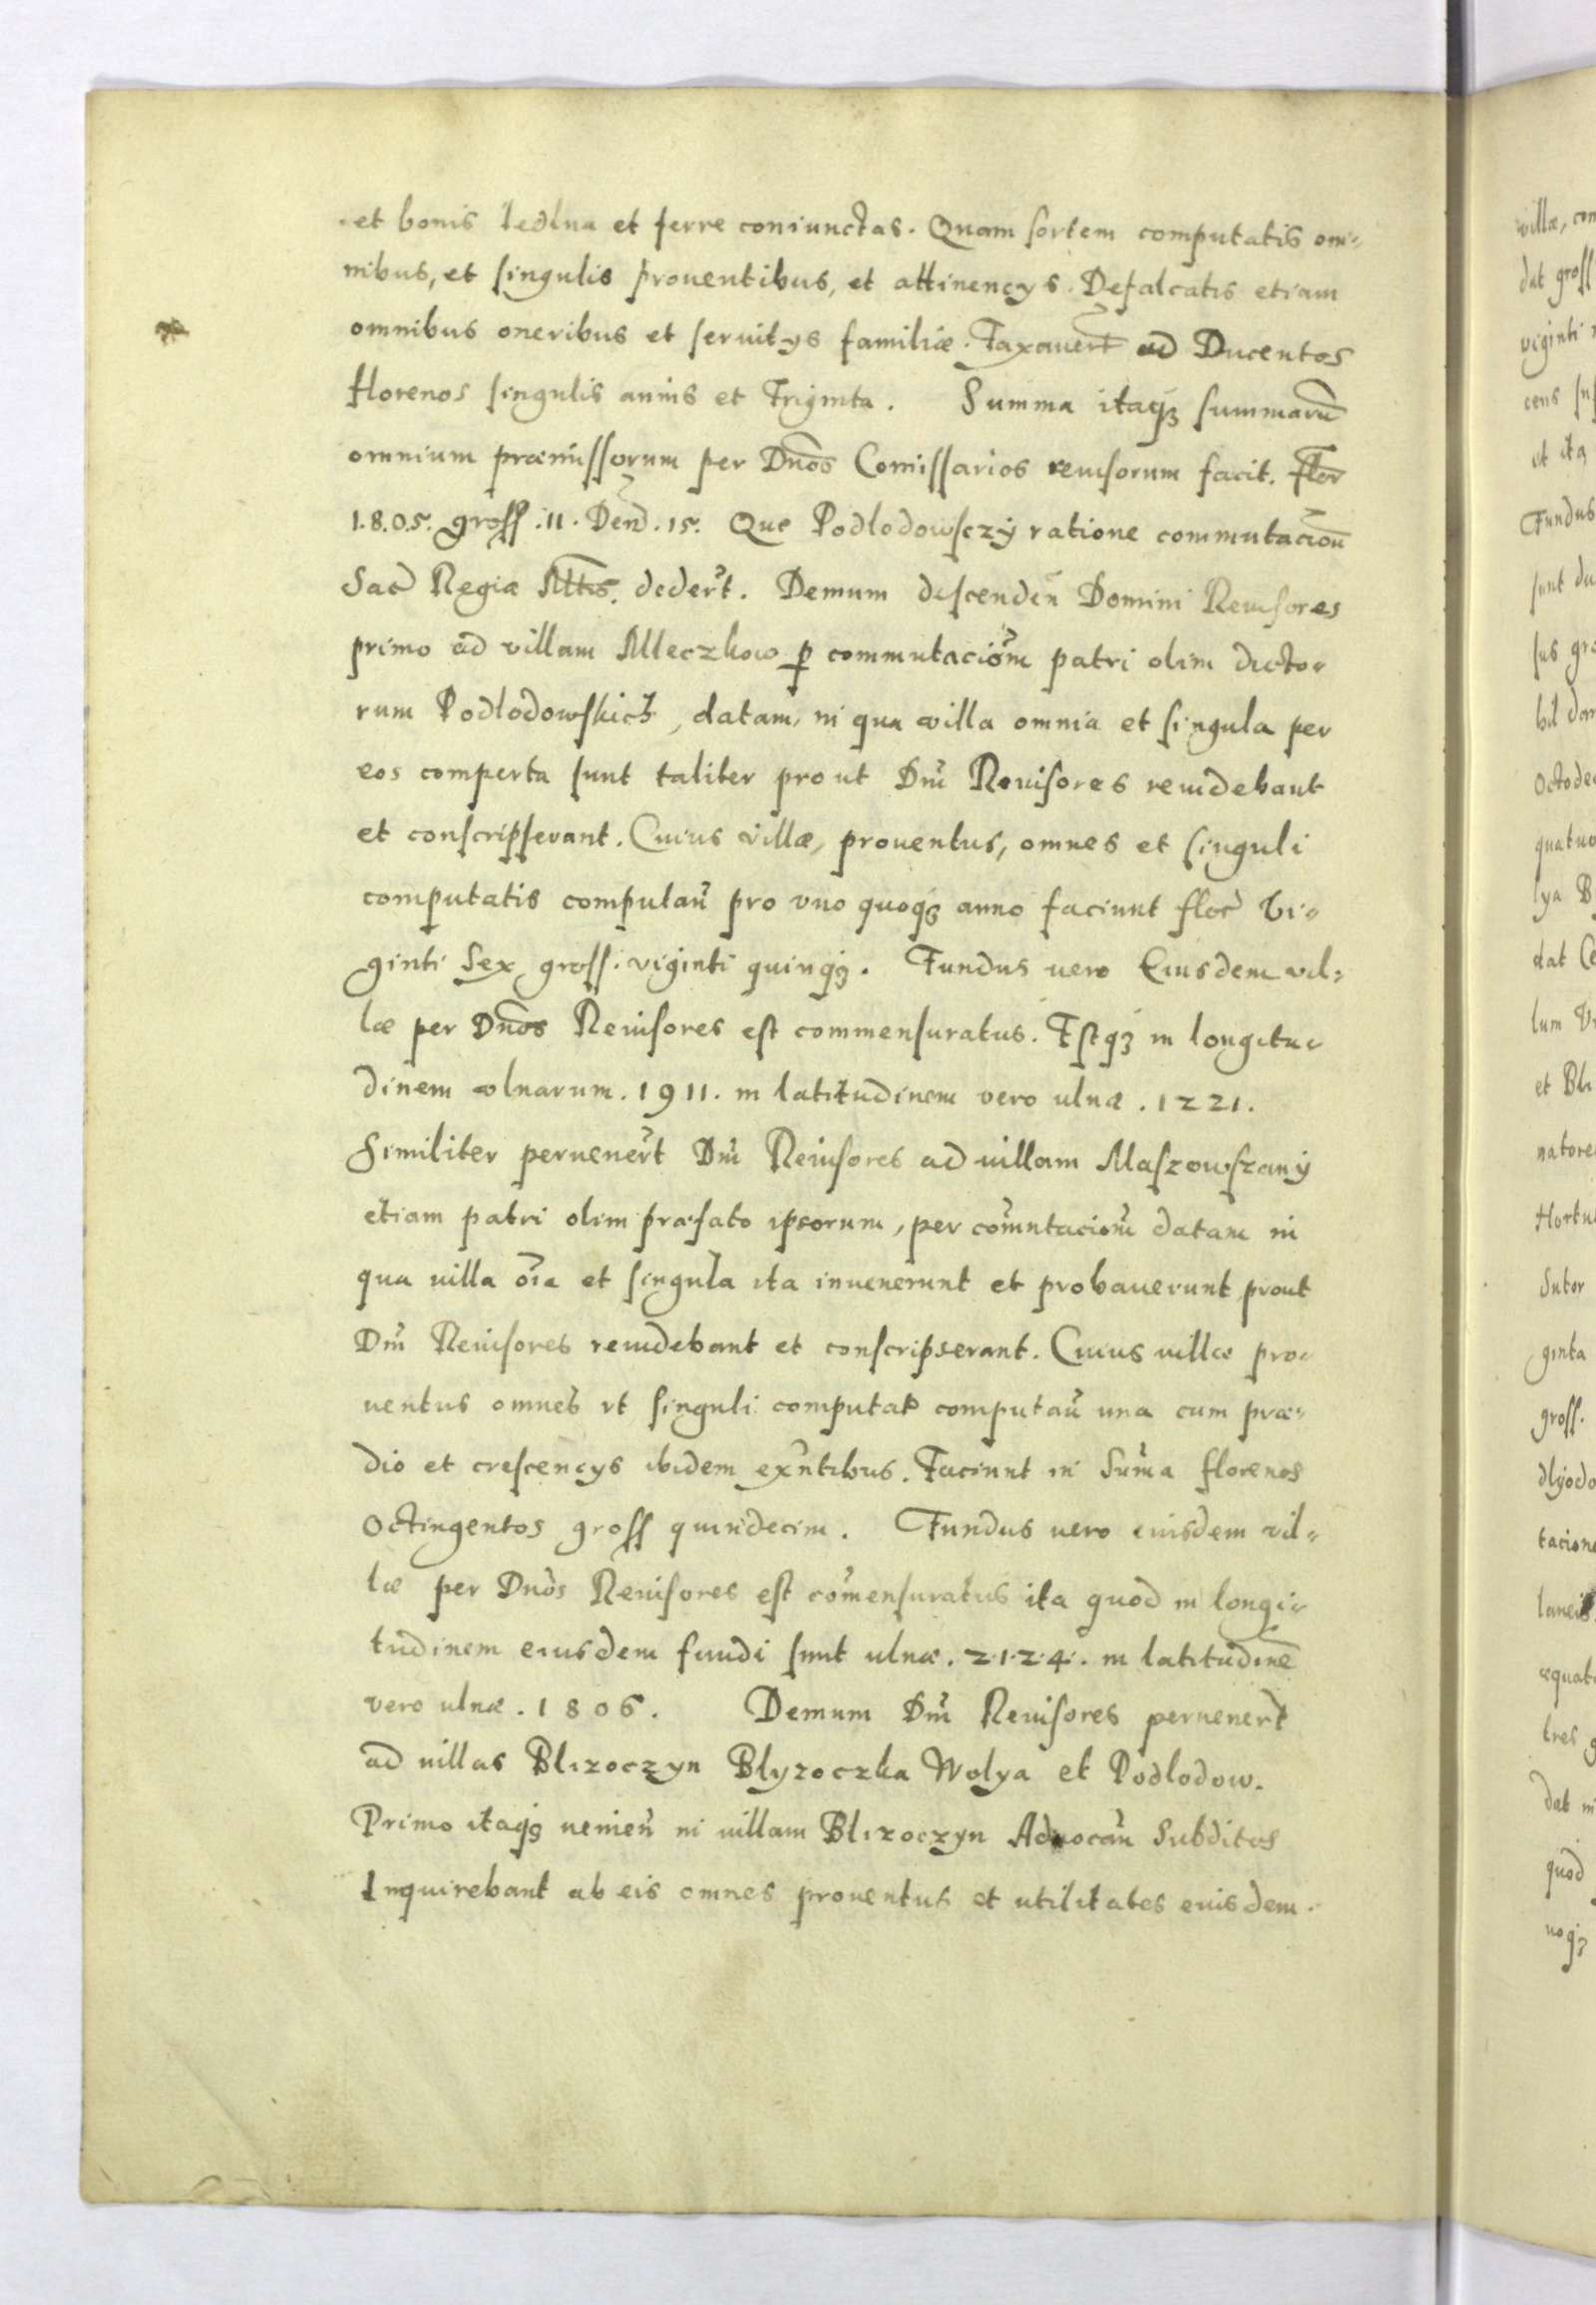 et bonis Iedlna et ferre coniunctas. Quam sortem computatis om=
nibus, et singulis prouentibus, et attinencys. Defalcatis etiam
omnibus oneribus et seruitys familiæ. Taxauert ad Ducentos
florenos singulis annis et Triginta. Summa itaqȝ summarū
omnium præmissorum per Dnōs Comissarios reuisorum facit. flor
1.8.0.5. gross .11. Den .15. Que Podlodowsczÿ ratione commutacion
Sac Regiæ Mttis. dedert. Demum descenden Domini Reuisores
primo ad villam Mleczkow ꝑ commutacionē patri olim dicto=
rum Podlodowskich, datam, in qua villa omnia et singula per
eos comperta sunt taliter prout Dni Reuisores reuidebant
et conscripserant. Cuius villæ, prouentus, omnes et singuli
computatis computan pro vno quoqȝ anno faciunt flor Vi=
ginti Sex gross. viginti quinqȝ. Fundus uero Eiusdem vil=
læ per Dnōs Reuisores est commensuratus. Estqȝ in longitu=
dinem vlnarum. 1911. in latitudinem vero ulnæ. 1221.
Similiter peruenert Dni Reuisores ad uillam Maszowszanÿ
etiam patri olim præfato ipsorum, per comutacionē datam in
qua uilla oīa et singula ita inuenerunt et probauerunt prout
Dni Reuisores reuidebant et conscripserant. Cuius uillæ pro=
uentus omnes vt singuli computat computan una cum præ=
dio et crescencys ibidem exntibus. Faciunt in Suma florenos
Octingentos gross quindecim. Fundus uero euisdem vil=
læ per Dnōs Reuisores est comensuratus ita quod in longi=
tudinem eiusdem fundi sunt ulnæ. 2.1.2.4. in latitudinē
vero ulnæ. 1806. Demum Dni Reuisores peruenert
ad uillas Blizoczyn Blyzoczka Wolya et Podlodow.
Primo itaqȝ uenien in uillam Blizoczyn Aduocan Subditos
Inquirebant ab eis omnes prouentus et utilitates euisdem.